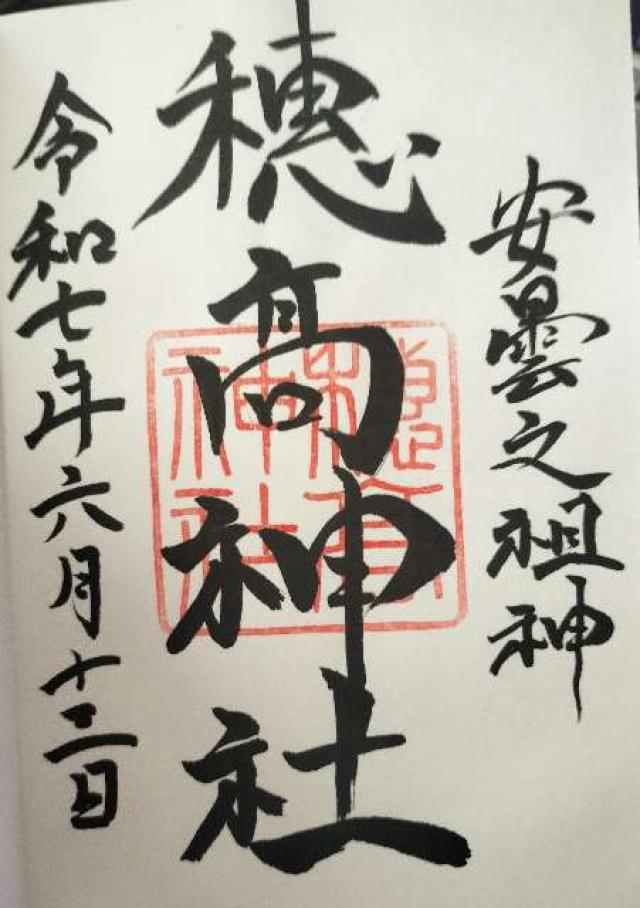 安曇之祖神
穂高神社
穂高神社
令和七年六月十二日